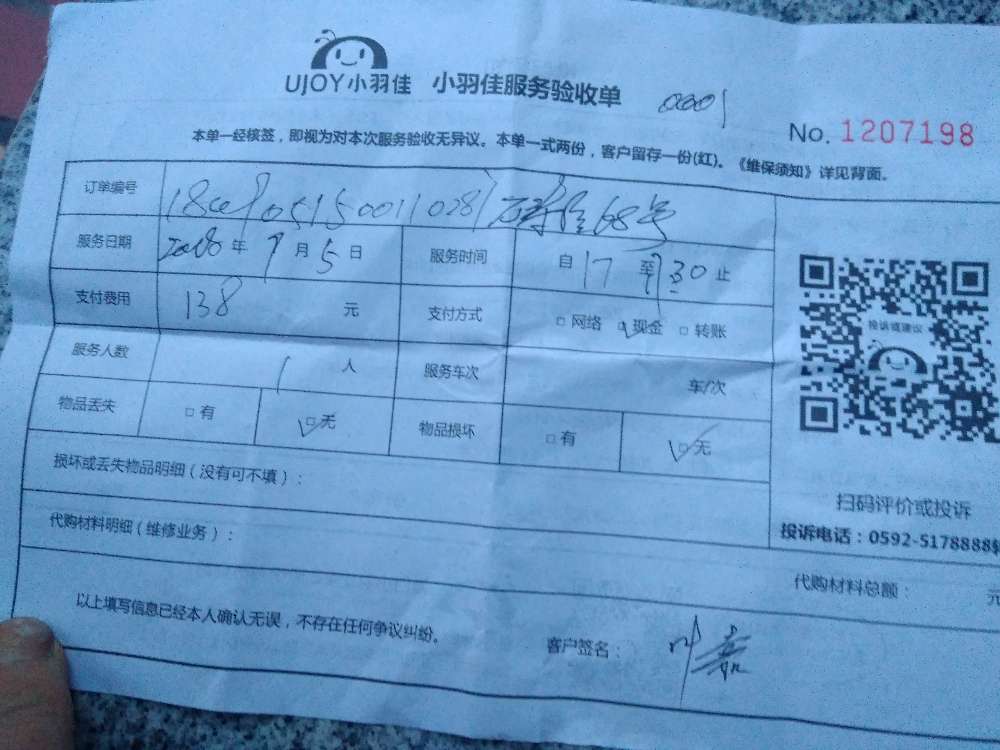 UJOY小羽佳 小羽佳服务验收单 0001
No. 1207198
本单一经核签，即视为对本次服务验收无异议。本单一式两份，客户留存一份(红)。《维保须知》详见背面。
订单编号 68号
服务日期 2018年9月5日 服务时间 自17至 30止
支付费用 138 元 支付方式 □网络 □现金 □转账
服务人数 1 人 服务车次 车/次
物品丢失 □有 □无 物品损坏 □有 □无
投诉或建议
损坏或丢失物品明细（没有可不填）：
扫码评价或投诉
投诉电话：0592-5178888转
代购材料明细（维修业务）：
代购材料总额： 元
以上填写信息已经本人确认无误，不存在任何争议纠纷。 客户签名：